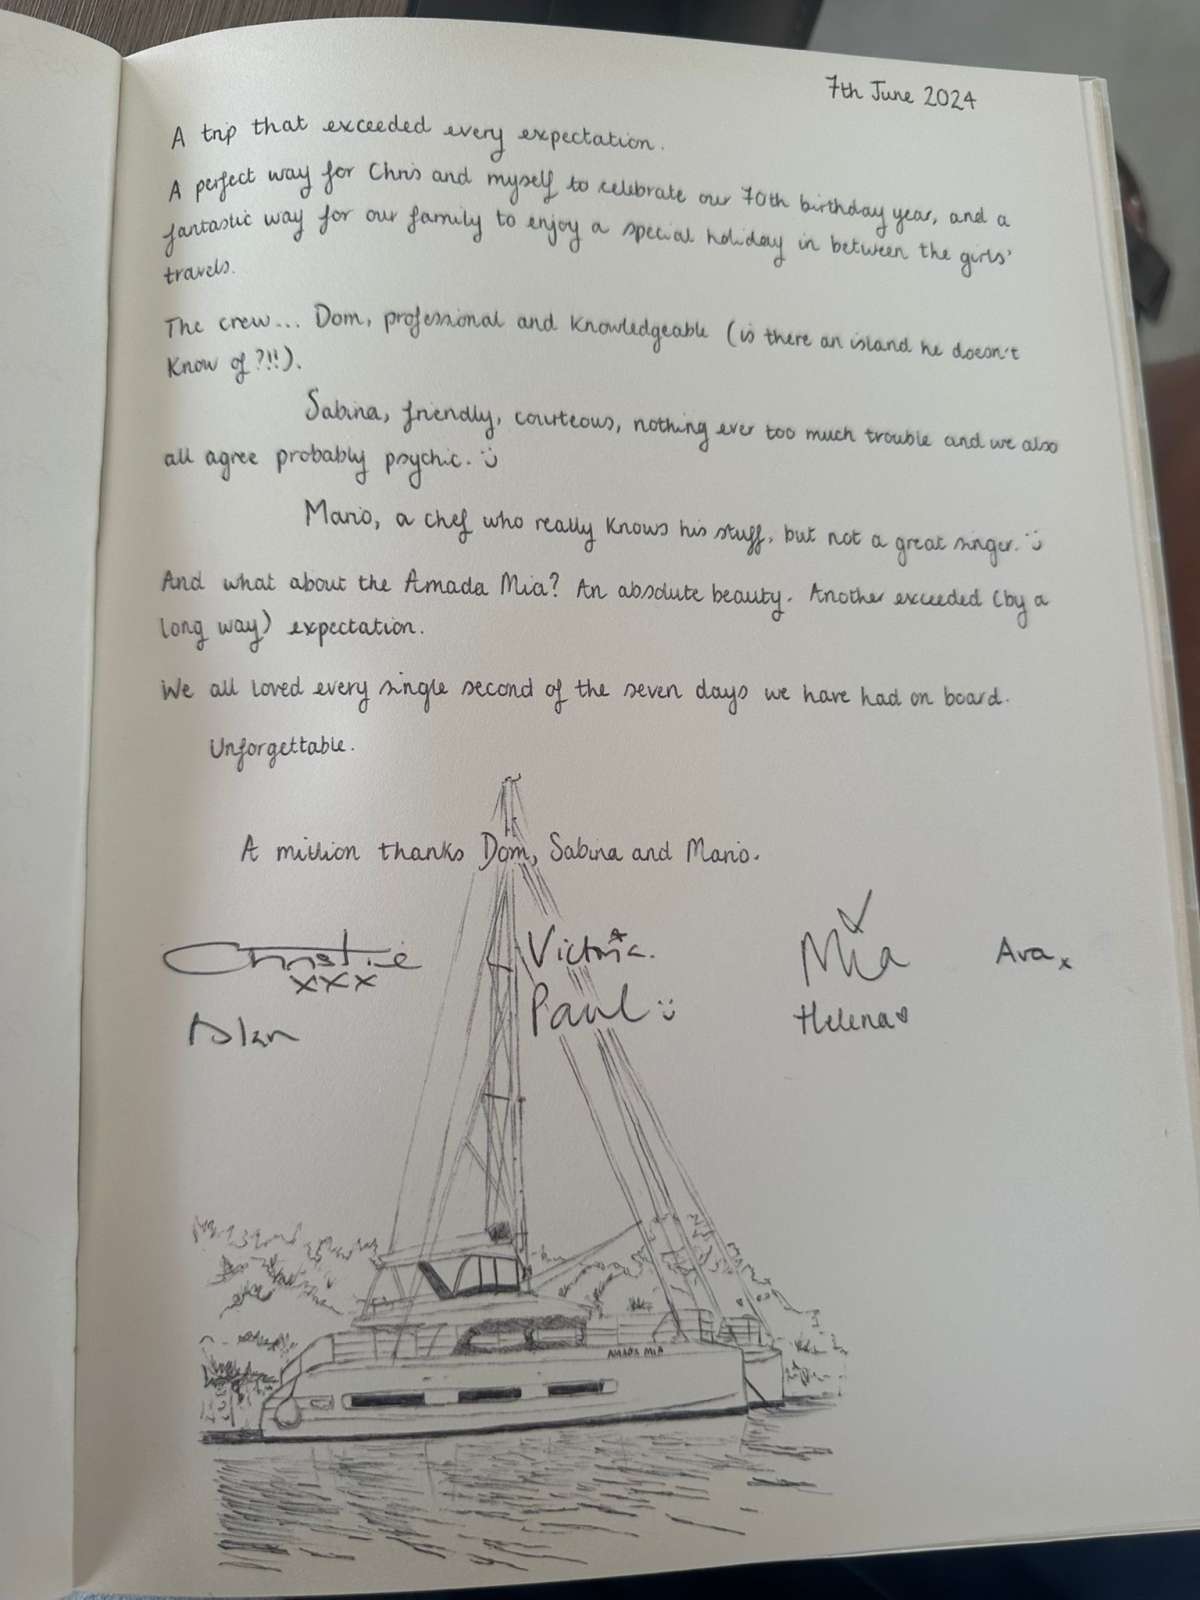 7th June 2024
A trip that exceeded every expectation.
A perfect way for Chris and myself to celebrate our 70th birthday year, and a
fantastic way for our family to enjoy a special holiday in between the girls'
travels.
The crew... Dom, professional and knowledgeable (is there an island he doesn't
know of?!!).
Sabina, friendly, courteous, nothing ever too much trouble and we also
all agree probably psychic. :)
Mario, a chef who really knows his stuff, but not a great singer. :)
And what about the Amada Mia? An absolute beauty. Another exceeded (by a
long way) expectation.
We all loved every single second of the seven days we have had on board.
Unforgettable.
A million thanks Dom, Sabina and Mario.
Christie Victoria. Mia Ava x
xxx
Alan Paul :) Helena ♡
AMADA MIA